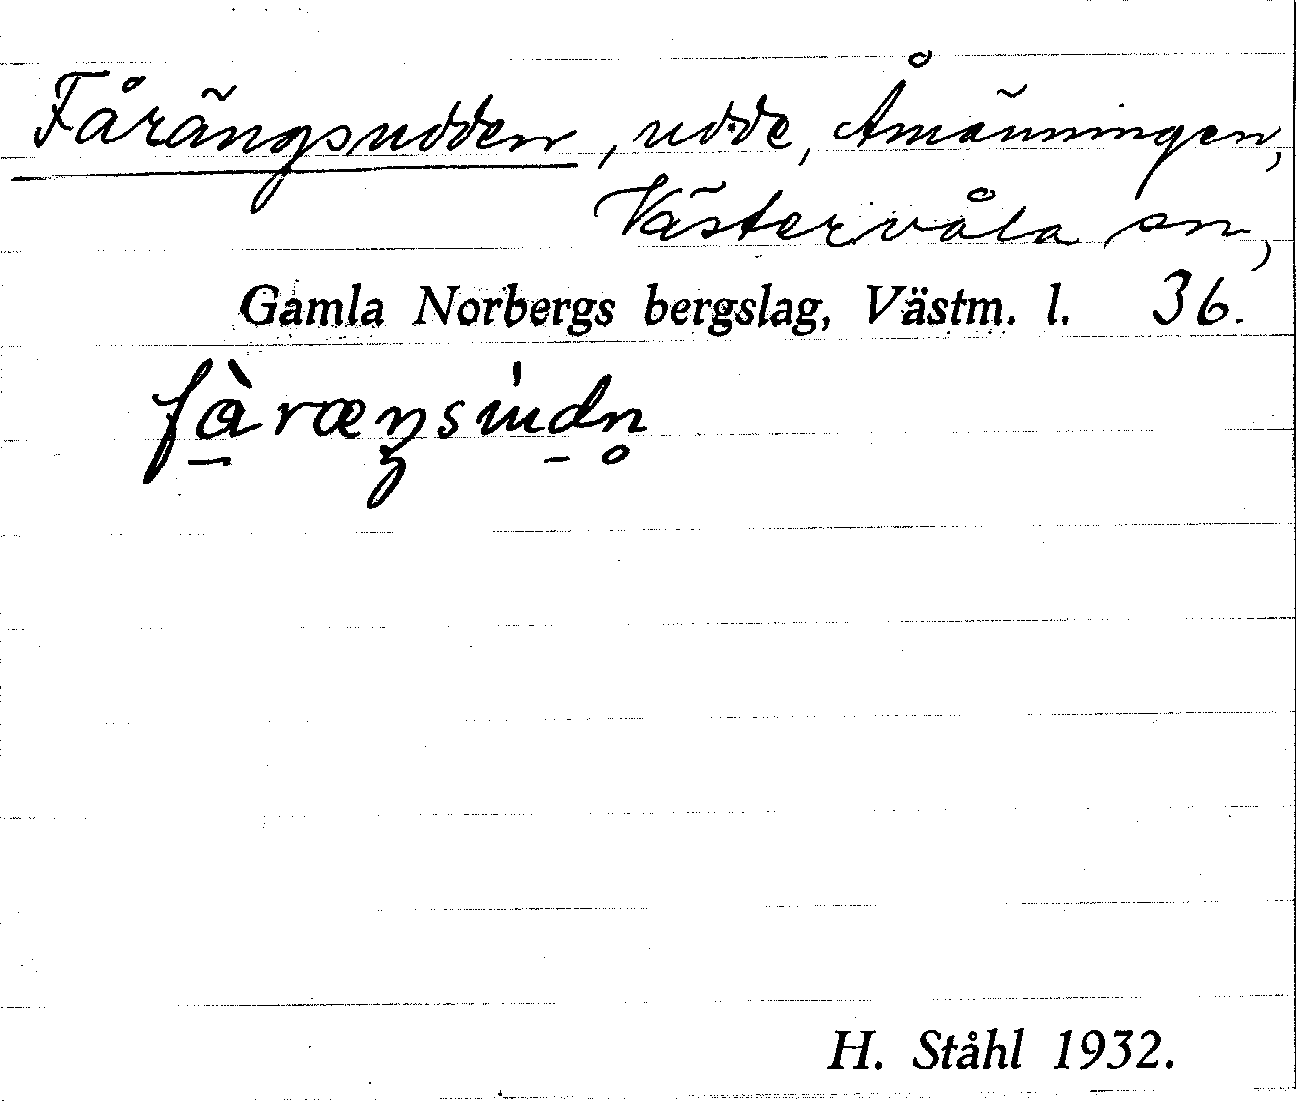 Fårängsudden, udde, Åmänningen,
Västervåla sn,
Gamla Norbergs bergslag, Västm. l. 36.
H. Ståhl 1932.